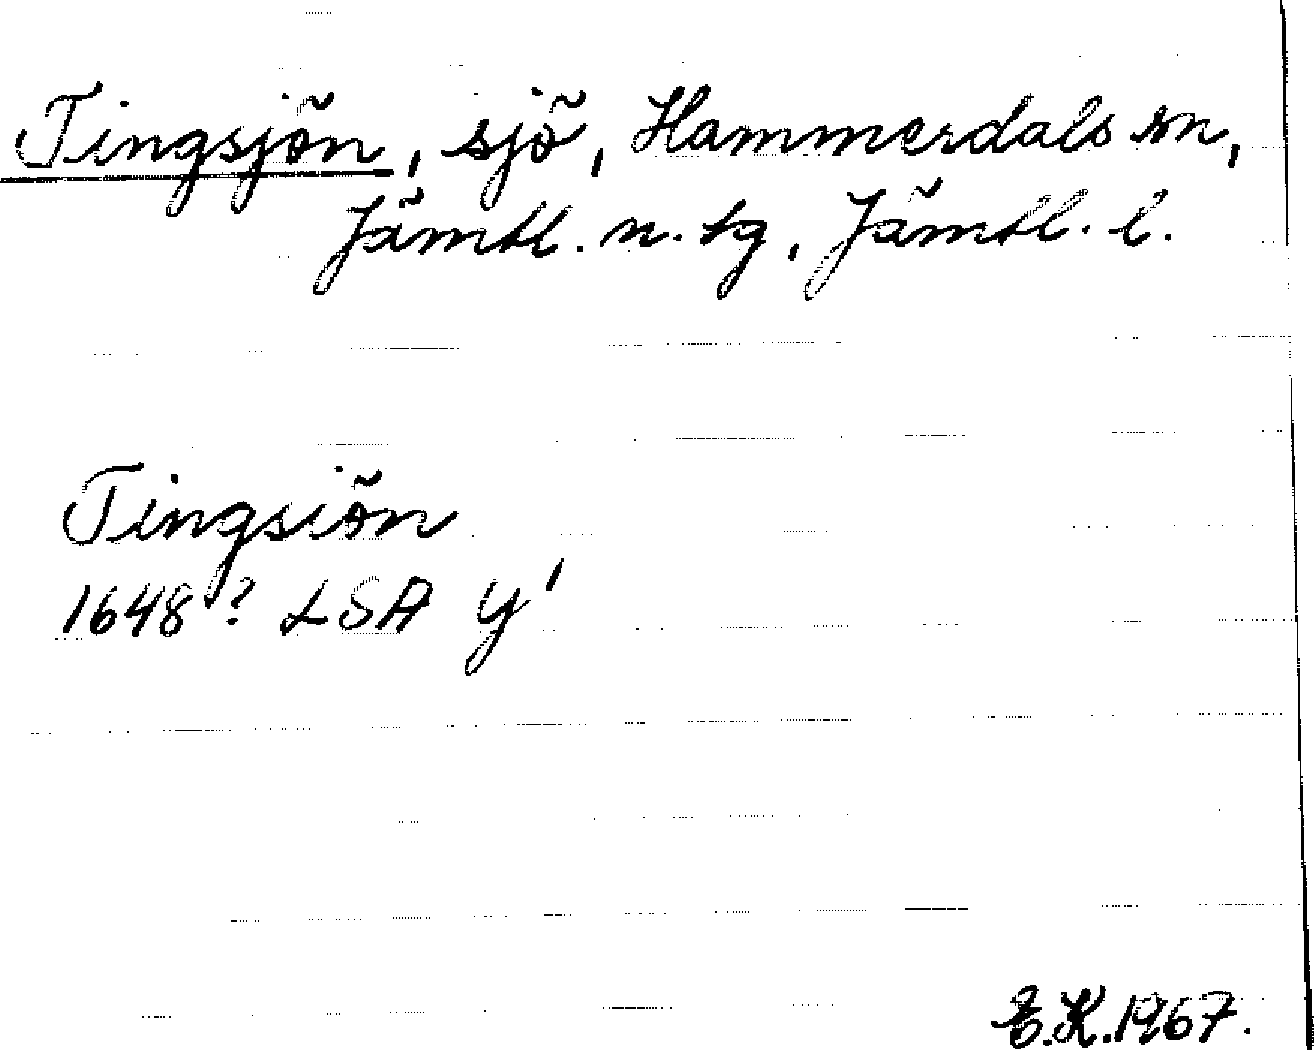 Tingsjön, sjö, Hammerdals sn,
Jämtl. n. tg, Jämtl. l.
Tingsiön
1648? LSA y¹
E.K. 1967.